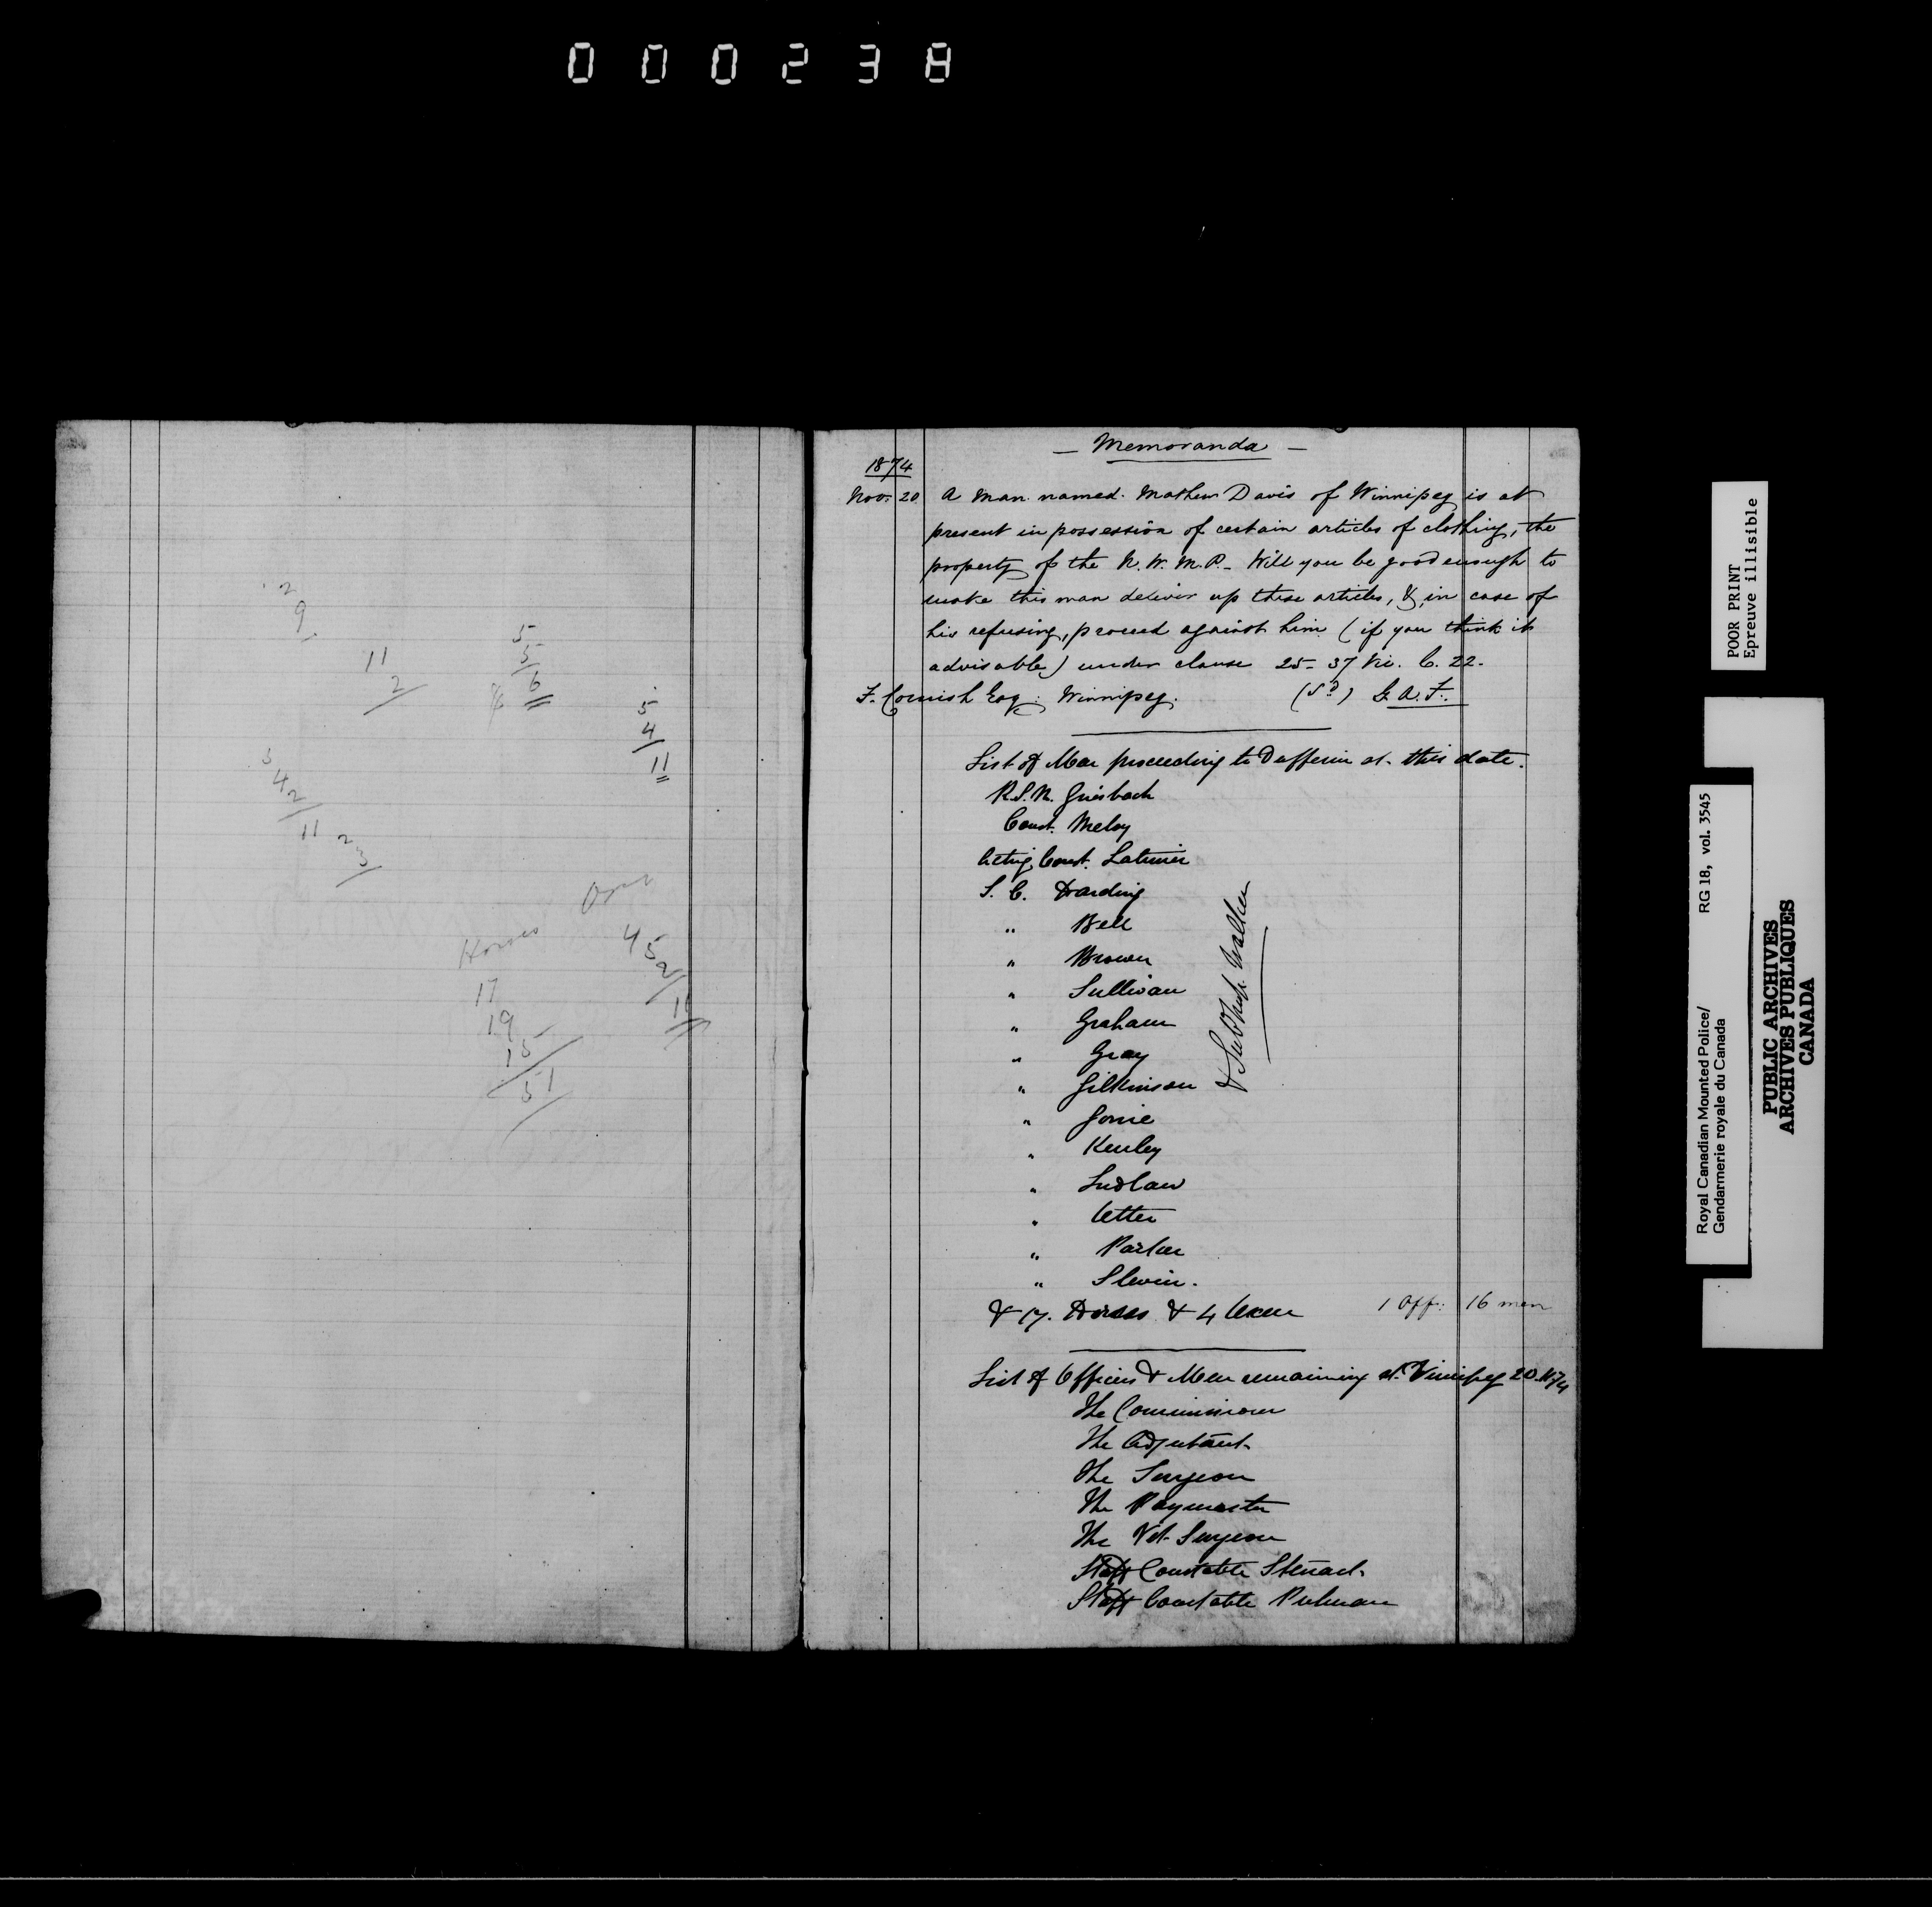 000238
2
9
11
2
5
5
6
5
4
11
5
4 2
11
2
3
Oxen
Horses
4 5
2
11
17
19
15
51
— Memoranda —
1874
Nov. 20 A man named Mathew Davis of Winnipeg is at
present in possession of certain articles of clothing, the
property of the N. W. M. P. - Will you be good enough to
make this man deliver up these articles, &, in case of
his refusing, proceed against him (if you think it
advisable) under clause 25 - 37 Vic. C. 22.
F. Cornish Esq. Winnipeg. (Sd) G. A. F.
List of Men proceeding to Dufferin at this date.
R.S.M. Griesbach
Const. Meloy
Acting Const. Latimer
S. C. Harding
" Bell
" Brown
" Sullivan
" Graham
" Gray
" Gilkinson
" Jonie
" Kenley
" Ludlow
" Utter
" Parker
" Slevin.
& Sub Insp. Walker
& 17. Horses & 4 Oxen 1 Off: 16 men
List of Officers & Men remaining at Winnipeg 20.11.74
The Commissioner
The Adjutant
The Surgeon
The Paymaster
The Vet. Surgeon
Staff Constable Steuart
Staff Constable Pulman
POOR PRINT
Epreuve illisible
Royal Canadian Mounted Police/ RG 18, vol. 3545
Gendarmerie royale du Canada
PUBLIC ARCHIVES
ARCHIVES PUBLIQUES
CANADA